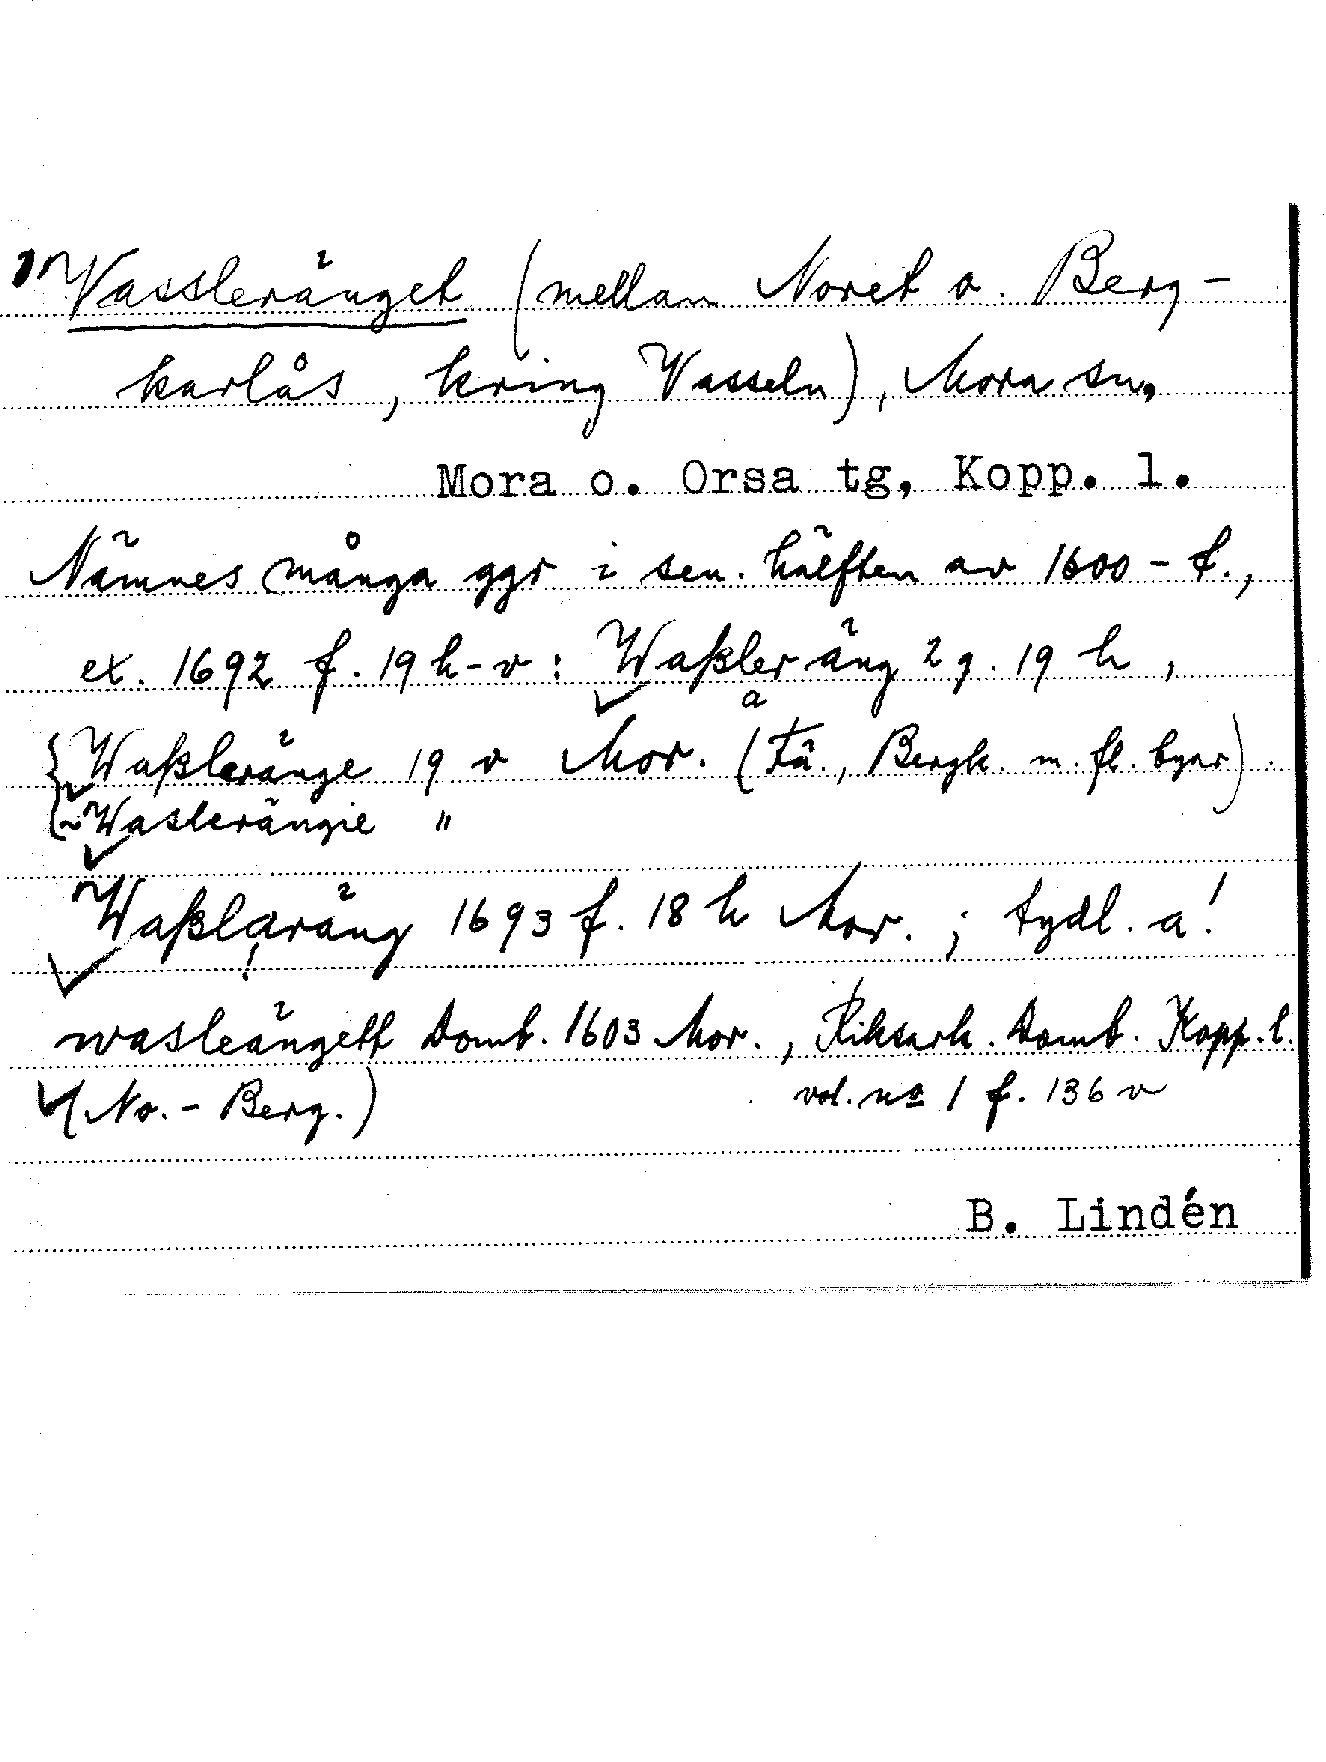 Vassleränget (mellan Noret o. Berg-
karlås, kring Vasseln), Mora sn,
Mora o. Orsa tg, Kopp. l.
Nämnes många ggr i sen. hälften av 1600-t.,
ex. 1692 f. 19 h-v: Waßler äng 2 g. 19 h,
a
Waßleränge 19 v Mor. (Få., Bergk. m. fl. byar).
~Waslerängie "
Waßlaräng 1693 f. 18 h Mor. ; tydl. a!
!
wasleängett Domb. 1603 Mor., Riksark. Domb. Kopp. l.
(No. - Berg.) vol. no 1 f. 136 v
B. Lindén